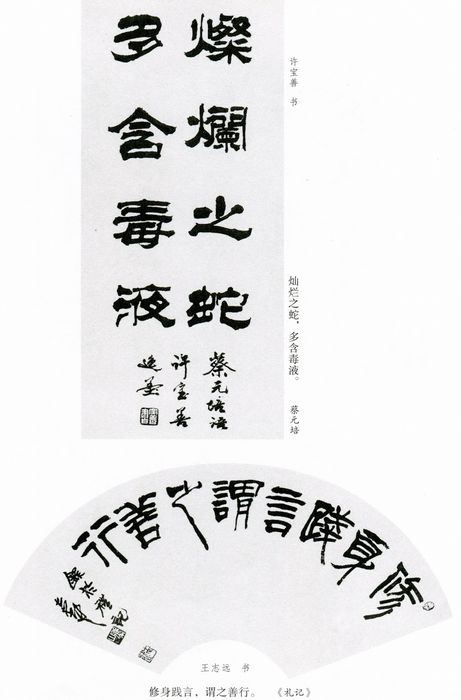 许宝善 书
灿烂之蛇，多含毒液。 蔡元培
燦爛之蛇
多含毒液
蔡元培語
許寶善
逸墨
修身踐言謂之善行
王志远 书
修身践言，谓之善行。 《礼记》